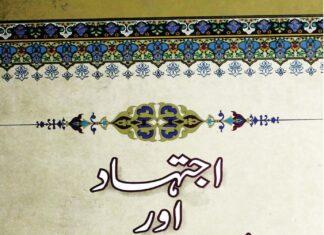 اجتہاد
اور